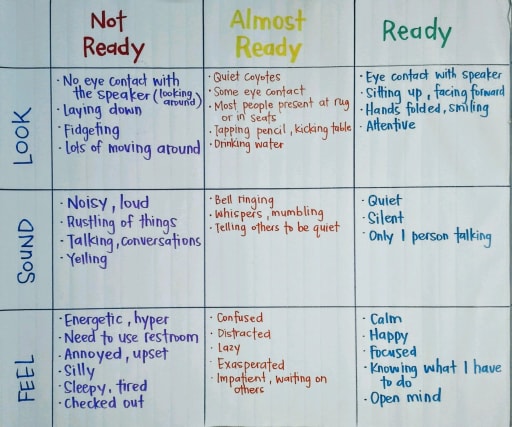 Not
Ready
Almost
Ready
Ready
LOOK
· No eye contact with
the speaker (looking
around)
· Laying down
· Fidgeting
· Lots of moving around
· Quiet coyotes
· Some eye contact
· Most people present at rug
or in seats
· Tapping pencil, kicking table
· Drinking water
· Eye contact with speaker
· Sitting up, facing forward
· Hands folded, smiling
· Attentive
SOUND
· Noisy, loud
· Rustling of things
· Talking, conversations
· Yelling
· Bell ringing
· Whispers, mumbling
· Telling others to be quiet
· Quiet
· Silent
· Only 1 person talking
FEEL
· Energetic, hyper
· Need to use restroom
· Annoyed, upset
· Silly
· Sleepy, tired
· Checked out
· Confused
· Distracted
· Lazy
· Exasperated
· Impatient, waiting on
others
· Calm
· Happy
· Focused
· Knowing what I have
to do
· Open mind